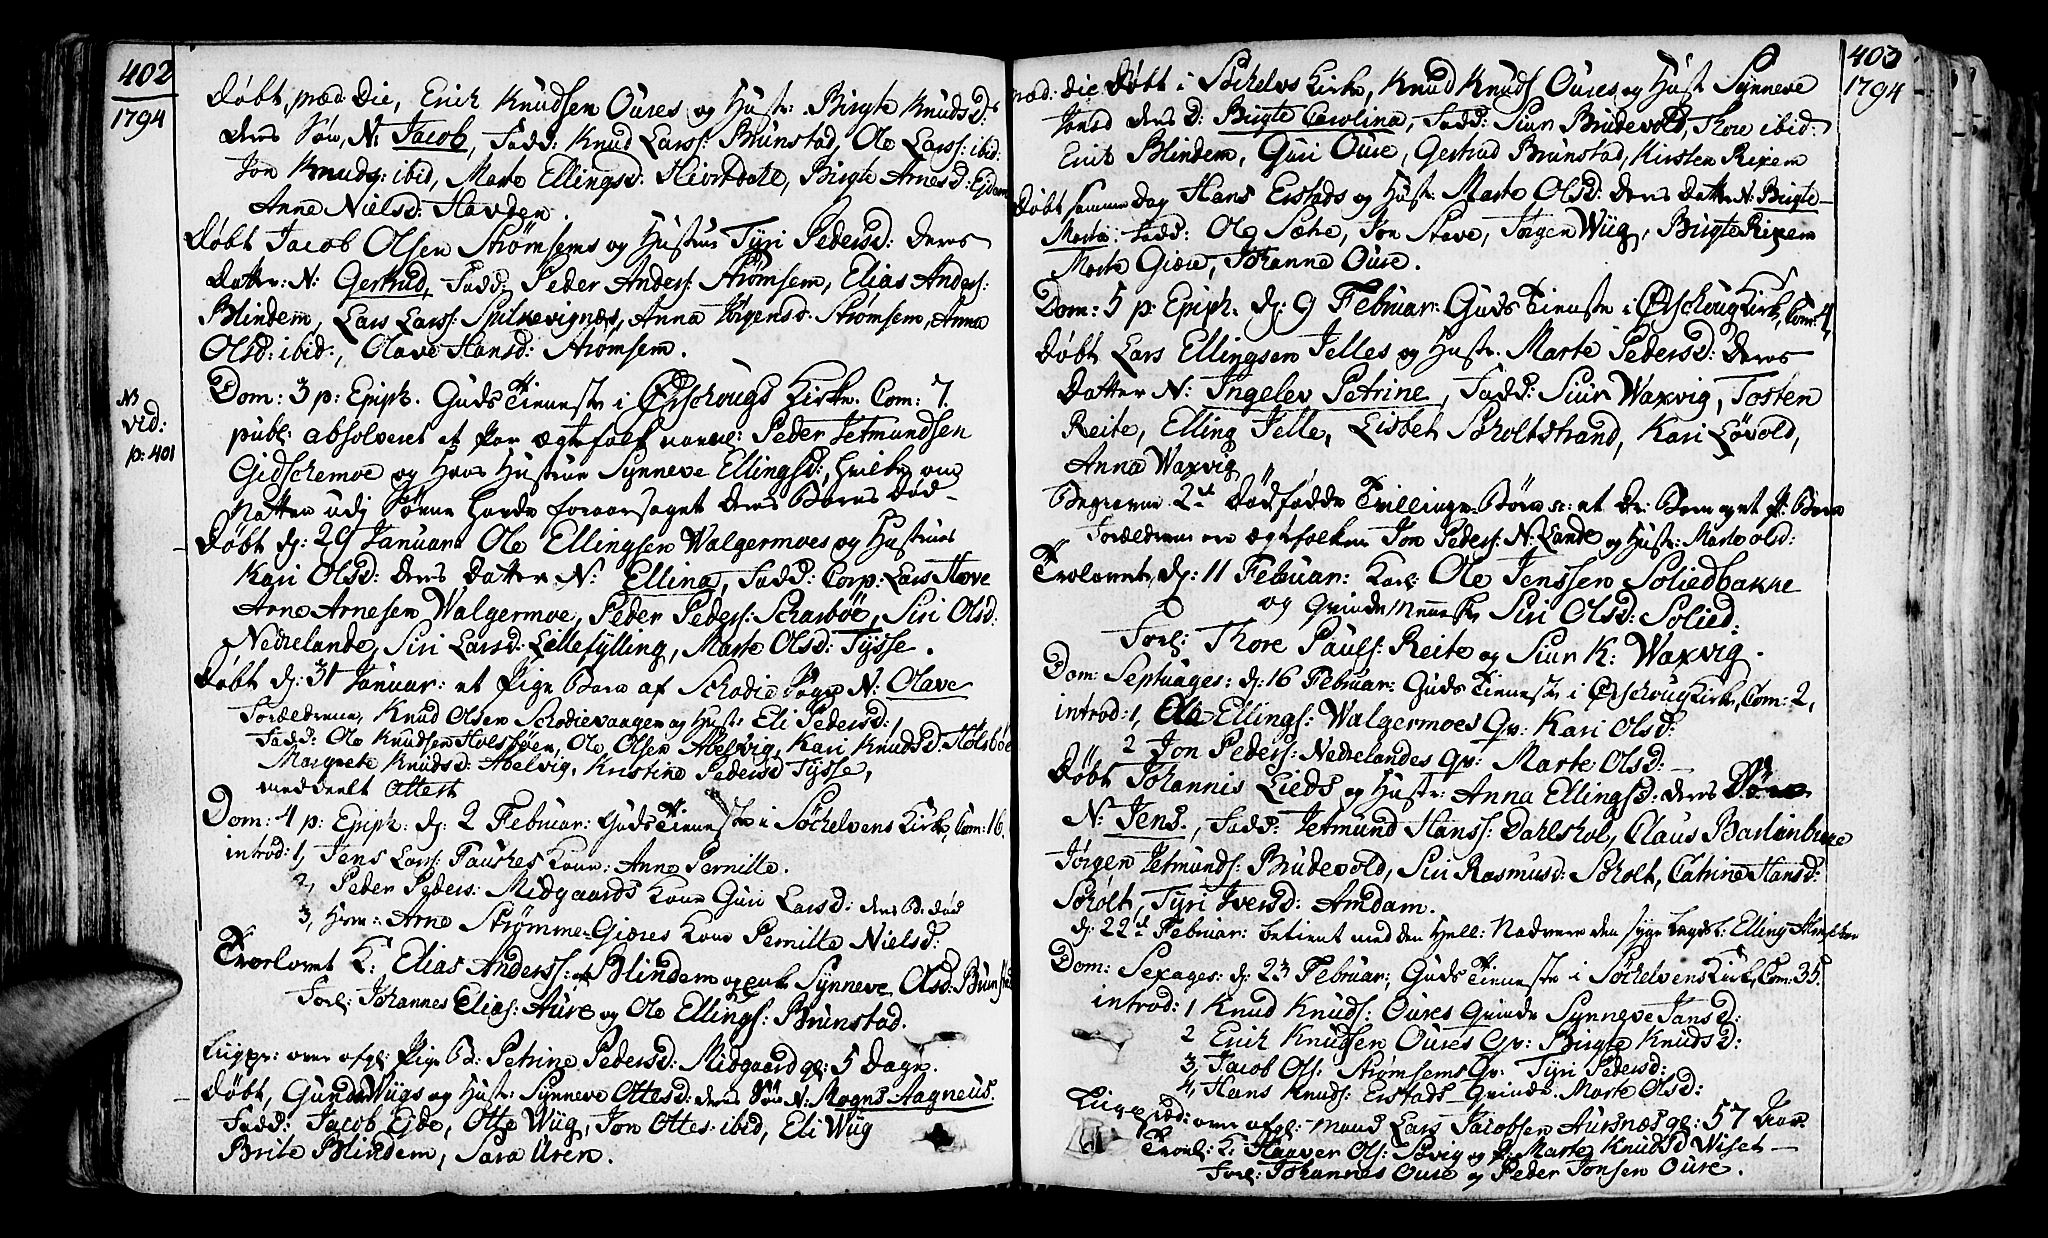 402
1794
Døbt præd: Die, Erich Knudsen Oures og Hustr: Birgte Knudsd:
deres Søn, N: Jacob, Fadd: Knud Larss: Brunstad, Ole Larss: ibid:
Jon Knuds: ibid, Marte Ellingsd: Hiortdale, Birgte Arnesd: Ejdem
Anne Nielsd: Havden.
Døbt Jacob Olsen Strømsems og Hustrue Tyri Pedersd: deres
Datter: N: Gertrud, Fadd: Peder Anders: Strømsem, Elias Anders:
Blindem, Lars Larss: Spilkevignæs, Anna Jørgensd: Strømsem, Anna
Olsd: ibid:, Olave Hansd: Strømsem.
Dom: 3 p: Epiph. Guds Tieneste i Ørschougs Kirke. Com: 7.
NB
vid:
p: 401
publ: absolveret et Par ægtefolk navnl: Peder Jetmundsen
Gidschemoe og Hans Hustrue Synneve Ellingsd: hvilke om
Natten udj Søvne havde foraarsaget deres Barns Død
Døbt d: 29 Januar: Ole Ellingsen Walgermoes og Hustrues
Kari Olsd: deres Datter N: Ellina, Fadd: Corp: Lars Stave
Arne Arnesen Walgermoe, Peder Peders: Scharbøe, Siri Olsd:
Nedrelande, Siri Larsd: Lillefylling, Marte Olsd: Tysse.
Døbt d: 31 Januar: et Pige Barn af Schodie Sogn N: Olave
Forældrene, Knud Olsen Schodievaagen og Hustr: Eli Pedersd:
Fadd: Ole Knudsen Holsbøen, Ole Olsen Abelvig, Kari Knudsd: Holsbøe
Margrete Knudsd: Abelvig, Kristine Pedersd Tysse,
meddeelt Attest
Dom: 4 p: Epiph: d: 2 Februar: Guds Tieneste i Søchelvens Kirke, Com: 16.
introd: 1, Jens Larss: Tauskes Kone: Anne Pernille.
2, Peder Peders: Midgaards Kone Guri Larsd: deres B: død
3, Arne Strømme-Giæres Kone Pernille Nielsd:
Trolovet K: Elias Anderss: Blindem og Synneve Olsd: Brunstad
Forl: Johannes Elias: Aure og Ole Ellings: Brunstad.
Liigpr: over afgl: Pige B: Petrine Pedersd: Midgaard gl: 5 Dage.
Døbt, Gunder Wiigs og Hustr: Synneve Ottesd: deres Søn N: Mogns Aagneus.
Fadd: Jacob Ejde, Otte Wiig, Jon Ottes: ibid, Eli Wiig
Brite Blindem, Sara Uren.
403
1794
præd: die Døbt i Søchelvs Kirke, Knud Knuds Oures og Hustr Synneve
Jonsd deres D: Birgte Carolina, Fadd: Siur Brudevold, Thore ibid:
Erik Blindem, Guri Oure, Gertrud Brunstad, Kirsten Rixem
Døbt samme Dag Hans Erstads og Hustr: Marte Olsd: deres Datter N: Birgte
Marta: Fadd: Ole Sæte, Jon Stave, Jørgen Wiig, Birgte Rixem
Marte Giære, Johanne Oure.
Dom: 5 p: Epiph. d: 9 Februar: Guds Tieneste i Ørschoug Kirk, Com: 4,
Døbt Lars Ellingsen Jelles og Hustr: Marte Pedersd: deres
Datter N: Ingelev Petrine, Fadd: Siur Waxvig, Tosten
Reite, Elling Jelle, Lisbet Scholtstrand, Kari Løvold,
Anna Waxvig
Begraven 2de Dødfødde Tvillinge Børn et Dr: Barn og et P: Barn
Forældrene ere ægtefolkene Jon Peders: N: Lande og Hustr: Marte Olsd:
Trolovet, d: 11 Februar: Karl: Ole Jenssen Soliedbakke
og Qvinde Mennesk Siri Olsd: Solied:
Forl: Thore Pauls: Reite og Siur K: Waxvig.
Dom: Septuages: d: 16 Februar: Guds Tieneste i Ørschoug Kirk, Com: 2,
introd: 1, Ole Ellings: Walgermoes Qv: Kari Olsd:
2 Jon Peders: Nedrelandes Qv: Marte Olsd:
Døbt Johannis Lieds og Hustr: Anna Ellingsd: deres
N: Jens., Fadd: Jetmund Hanss: Dahlshol, Claus Barlinburge
Jørgen Jetmunds: Brudevold, Siri Rasmusd: Scholt, Catrine Hansd:
Scholt, Tyri Iversd: Amdam.
d: 22d Februar: betient med den Hell: Nadvere den syge Elling
Dom: Sexages: d: 23 Februar:, Guds Tieneste i Søchelvens Kirk, Com: 35.
introd: 1 Knud Knuds: Oures Qvinde Synneve Jansd:
2 Erich Knudsen Oures Qv: Birgte Knudsd:
3, Jacob Ols: Strømsems Qv: Tyri Pedersd:
4, Hans Knuds: Erstads Qvinde Marte Olsd:
over afgl: mand Lars Jacobsen Aursnæs gl: 57 Aar.
Trol: K: Haaver Ols: Søvig og P: Marte Knudsd Wiset
Forl: Johannes Oure og Peder Jonsen Oure.